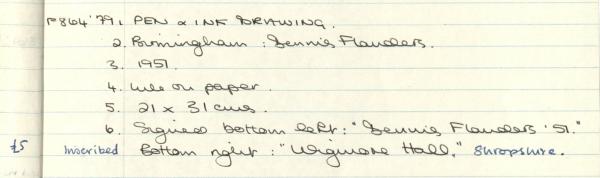 P864'79. 1. PEN & INK DRAWING.
2. Birmingham : Dennis Flanders.
3. 1951.
4. Ink on paper.
5. 21 x 31 cms.
6. Signed bottom left : "Dennis Flanders '51."
£5 Inscribed Bottom right : "Wigmore Hall," Shropshire.